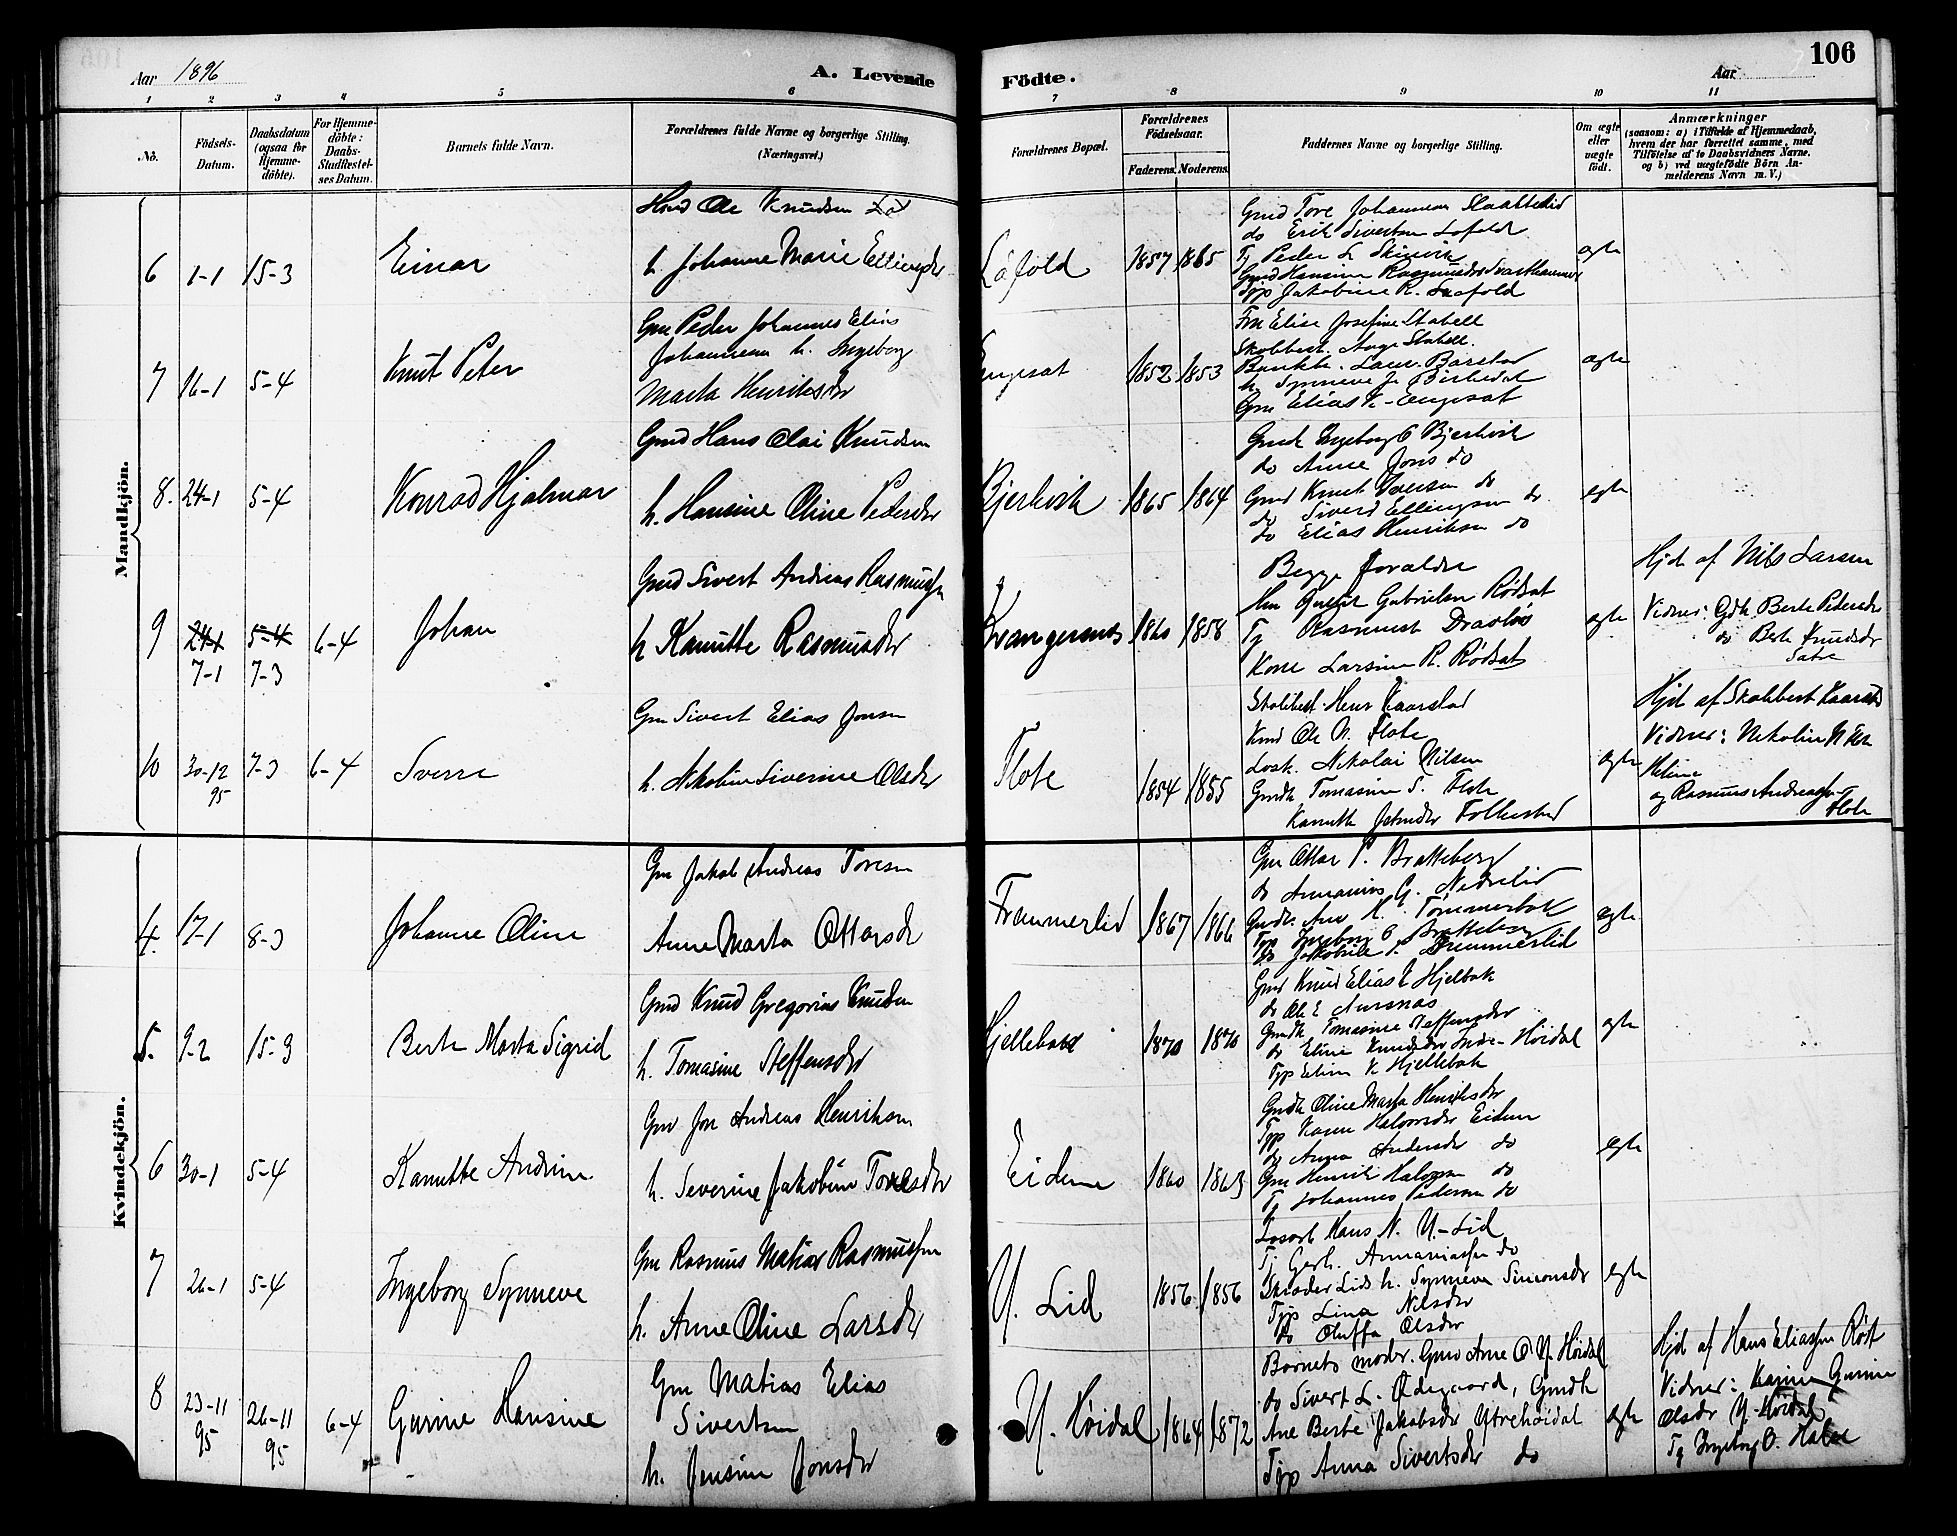 Aar 1896
A. Levende Födte.
Aar
106
1 2 3 4 5 6 7 8 9 10 11
No.
Födsels-Datum.
Daabsdatum (ogsaa for Hjemme-döbte).
For Hjemme-döbte: Daabs-Stadfæstel-ses Datum.
Barnets fulde Navn.
Forældrenes fulde Navne og borgerlige Stilling. (Næringsvei.)
Forældrenes Bopæl.
Forældrenes Födselsaar.
Faderens. Moderens.
Faddernes Navne og borgerlige Stilling.
Om ægte eller uægte födt.
Anmærkninger
(saasom: a) i Tilfælde af Hjemmedaab,
hvem der har forrettet samme, med
Tilföielse af to Daabsvidners Navne,
og b) ved uægtefödte Börn An-
melderens Navn m. V.)
Mandkjön.
6 1-1 15-3 Einar
Ole Knudsen
h. Johanne Marie Ellingsdr
1857 1865
Gmd Tore Johannesen
do Erik Sivertsen Lofold
Tj Peder
Gmd Hansine Rasmusdr Svarthammer
Jakobine R.
ægte
7 16-1 5-4 Knut Peter
Gm Peder Johannes Elias
Johannesen h. Ingeborg
Marta Henriksdr
Engeset 1852 1853
Elise Josefine Stabell
Aage Stabell.
Laur. Barstad
h. Synneve J. Birkedal
Gm Elias K. Engeset
ægte
8. 24-1 5-4 Konrad Hjalmar
Gmd Hans Olai Knudsen
h. Hansine Oline Pedersdr
Bjerkvik 1865 1864
Ingeborg O Bjerkvik
do Anne Jons do
Gmd Knut Iversen do
do Sivert Ellingsen do
do Elias Henriksen do
egte
9 24-1 5-4 6-4 Johan
7-1 7-3
Gmd Sivert Andreas Rasmussen
h Kanutte Rasmusdr
Kvangersnes 1860 1858
Begge foraldre
Gabrielsen Rødset
Tj Rasmus
Kone Larsine R. Rødset
ægte
Hjd af Nils Larsen
Vidner: Gdk Berte Pedersdr
do Berte Knudsdr
Satre
10 30-12 7-3 6-4 Sverre
95
Gm Sivert Elias Jonsen
h. Nikoline Siverine Olsdr
Flote 1854 1855
Skolebest. Henr Kaarstad
Ole N. Flote
Losk. Nikolai Nilsen
Gmdk Tomasine S. Flote
Kanutte Folkestad
ægte
Hjd af Skolebest Kaarstad
Vidner: Nikoline
og Rasmus Andreassen
Flote
Kvindekjön.
4. 17-1 8-3 Johanne Oline
Gm Jakob Andreas Toresen
Anne Marta Ottarsdr
Frammerlid 1867 1866
Gm Ottar P. Bratteberg
do Annanias G. Nedrelid
Gmdk. Ane K. Tömmerbak
Typ Ingeborg O Bratteberg
do Jakobine T. Frammerlid
ægte
5. 9-2 15-3 Berte Marta Sigrid
Gmd Knud Gregorius Knudsen
h. Tomasine Steffensdr
Hjellebak 1870 1870
Gmd Knud Elias E Hjelbak
do Ole E Aursnæs
Gmdk Tomasine Steffensdr
do Eline Knudsdr Indre-Høidal
Typ Eline K Hjellebak
ægte
6 30-1 5-4 Kanutte Andrine
Gm Jon Andreas Henriksen
h. Severine Jakobine Toresdr
Eidene 1860 1863
Gmdk Oline Marta Henriksdr
Typ Karen Halvorsdr Eidem
do Anna Andersdr do
Gm Henrik do
Tj Johannes Pedersen do
egte
7 26-1 5-4 Ingeborg Synneve
Gm Rasmus Matias Rasmussen
h. Anne Oline Larsdr
Y. Lid 1856 1856
Hans N. Y-Lid
Tj Gerh. Annaniassen do
Skræder Lids h. Synneve Simonsdr
Typ Lina Nilsdr
do Oluffa Olsdr
egte
8 23-11 26-11 6-4 Gurine Hansine
95 95
Gm Matias Elias
Sivertsen
h. Jensine Jonsdr
Y. Høidal 1864 1872
Barnets moder. Gmd Arne O Y. Høidal
do Sivert L. Ødegaard, Gmdk
Ane Berte Jakobsdr Ytrehøidal
Typ Anna Sivertsdr do
ægte
Hjd af Hans Eliassen Røst
Vidner: Karine Gurine
Olsdr Y-Høidal
Tj Ingeborg O.